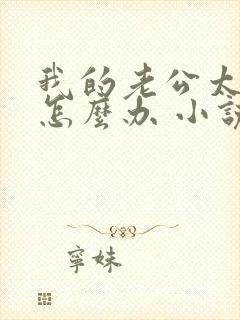 我的老公太
怎麼办 小說
寧妹